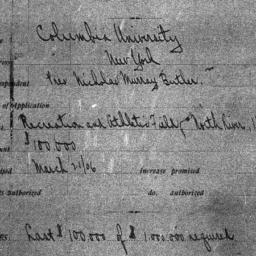 Columbia University
New York
Pres Nicholas Murray Butler.
of Application
Recreation and Athletic Field, North River,
$100.000
March 21/06 increase promised
authorized do. authorized
Last $100.000 of $1.000.000 required